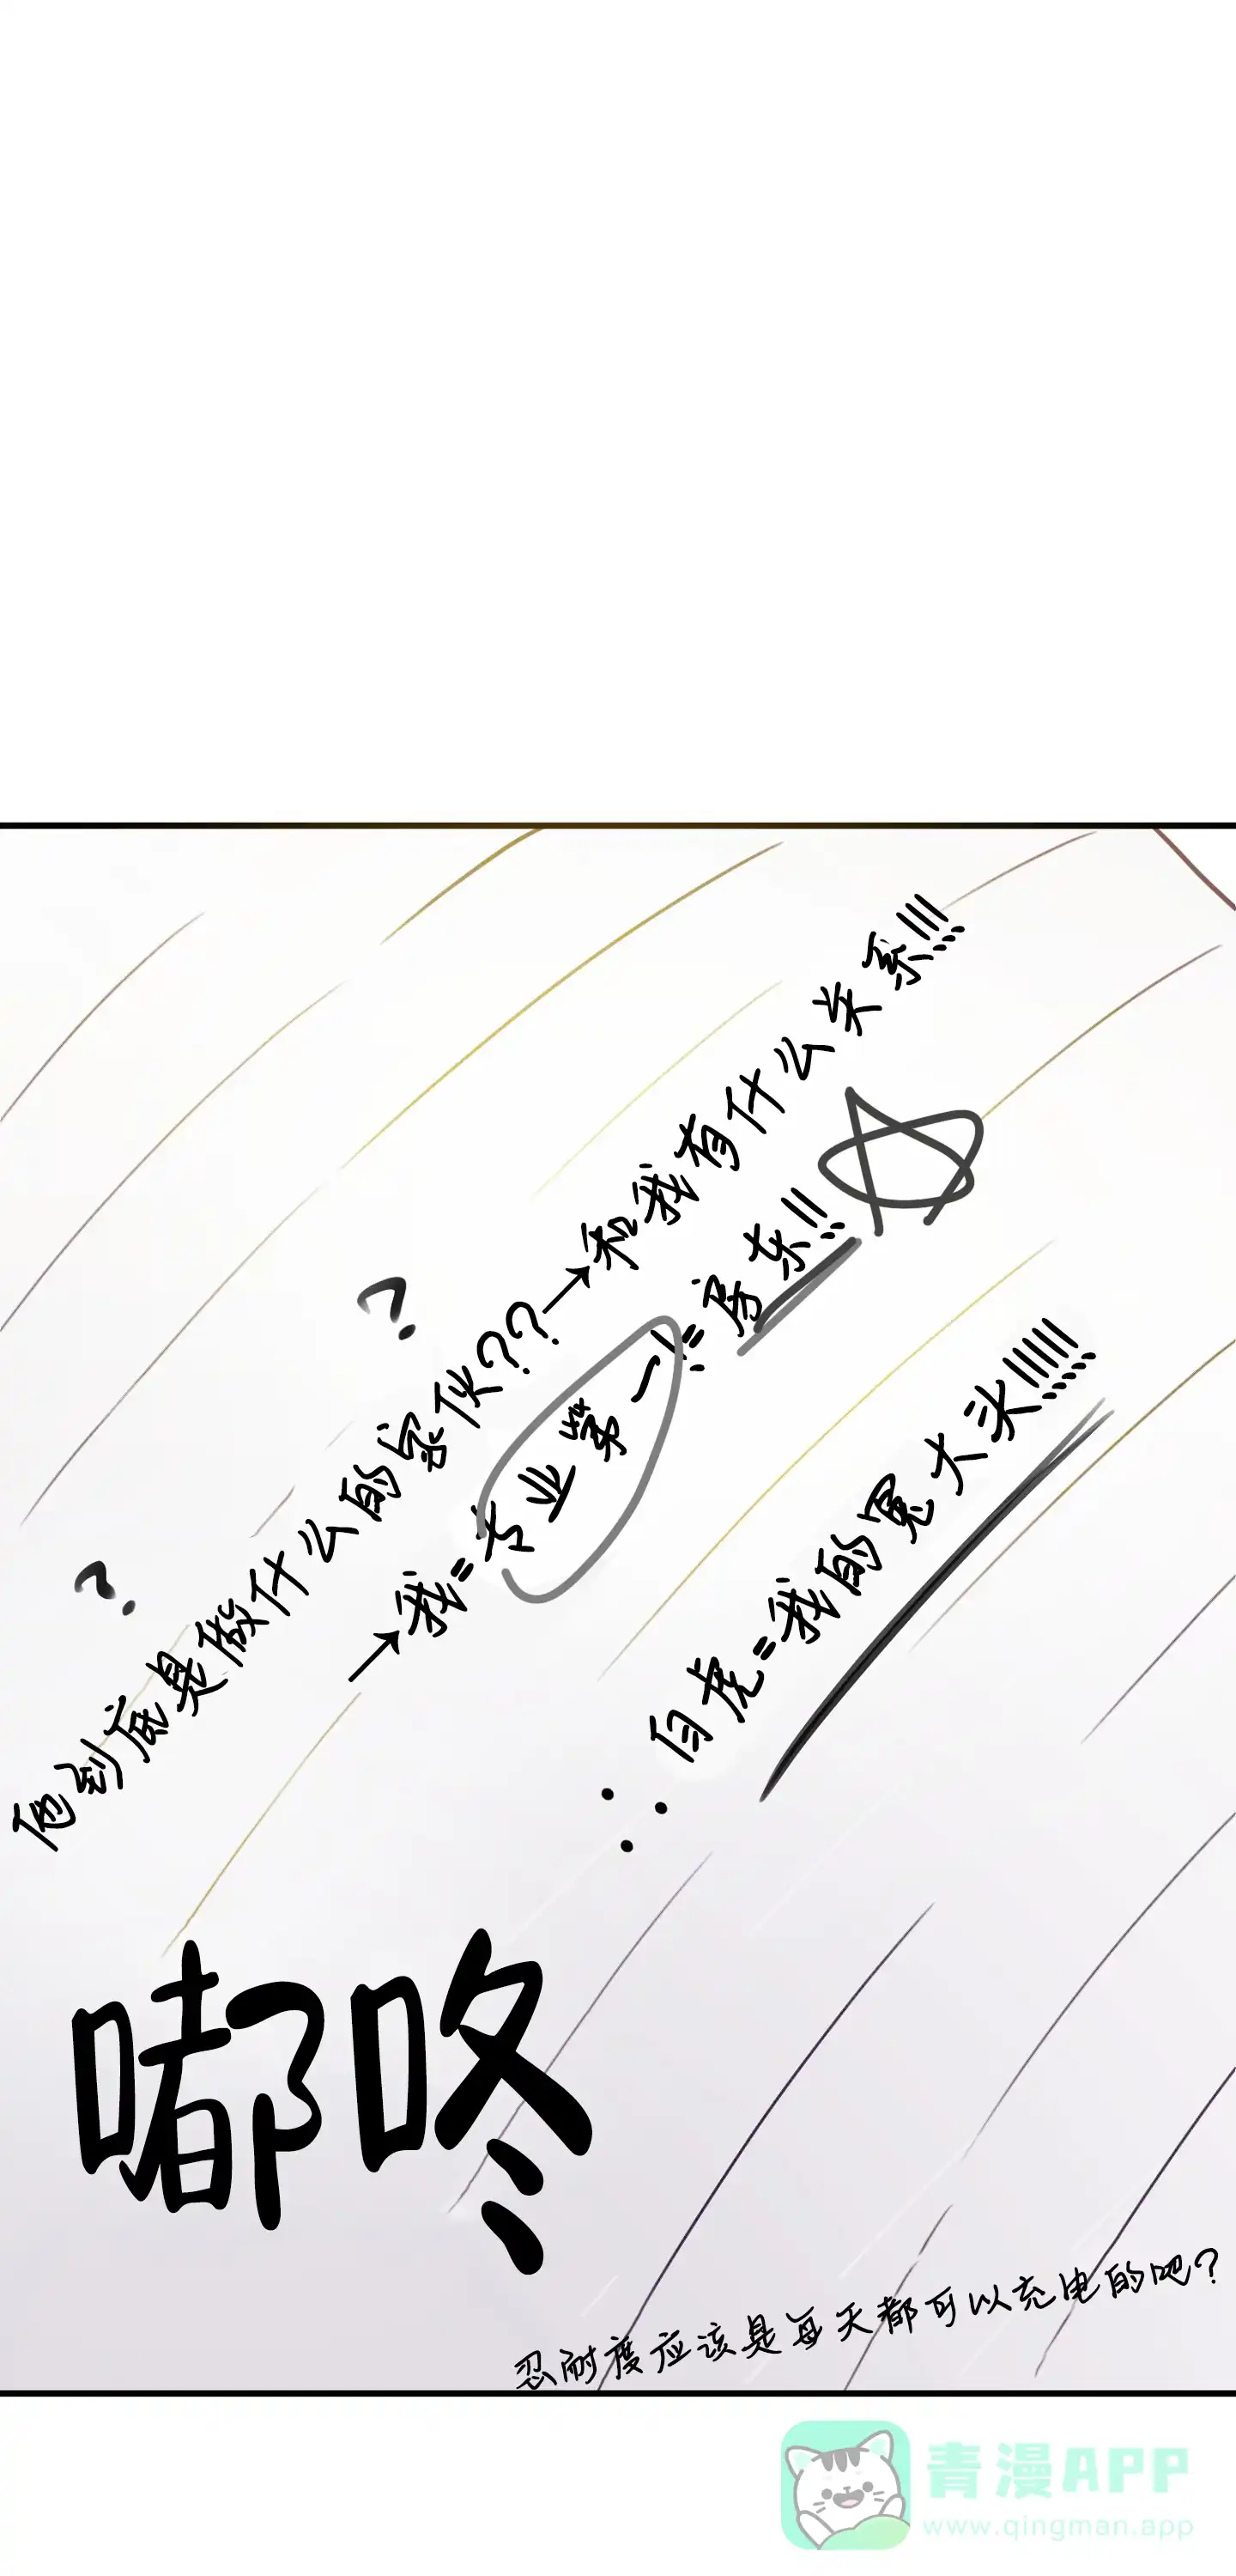 他到底是做什么的家伙??→和我有什么关系!!!!
?
?
→我=专业第一!=房东!!!
∴白虎=我的冤大头!!!!!!
嘟咚
忍耐度应该是每天都可以充电的吧?
青漫APP
www.qingman.app